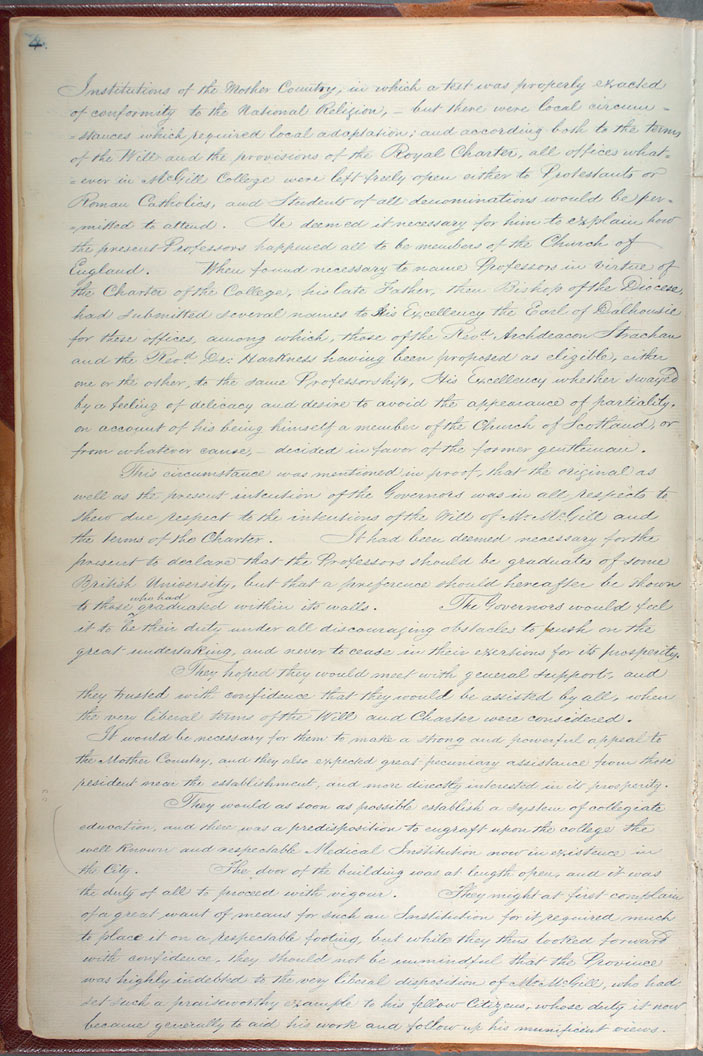 4.
Institutions of the Mother Country, in which a test was properly exacted
of conformity to the National Religion, – but there were local circum =
= stances which required local adaptation; and according both to the terms
of the Will and the provisions of the Royal Charter, all offices what =
= ever in McGill College were left freely open either to Protestants or
Roman Catholics, and Students of all denominations would be per =
= mitted to attend. He deemed it necessary for him to explain how
the present Professors happened all to be members of the Church of
England. When found necessary to name Professors in virtue of
the Charter of the College, his late Father, then Bishop of the Diocese,
had submitted several names to His Excellency the Earl of Dalhousie
for these offices, among which, those of the Revd. Archdeacon Strachan
and the Revd. Dr. Harkness having been proposed as eligible, either
one or the other, to the same Professorship, His Excellency whether swayed
by a feeling of delicacy and desire to avoid the appearance of partiality,
on account of his being himself a member of the Church of Scotland, or
from whatever cause, – decided in favor of the former gentleman.
This circumstance was mentioned in proof, that the original as
well as the present intention of the Governors was in all respects to
shew due respect to the intentions of the Will of Mr. McGill and
the terms of the Charter. It had been deemed necessary for the
present to declare that the Professors should be graduates of some
British University, but that a preference should hereafter be shown
to those who had graduated within its walls. The Governors would feel
it to be their duty under all discouraging obstacles to push on the
great undertaking, and never to cease in their exertions for its prosperity.
They hoped they would meet with general support, and
they trusted with confidence that they would be assisted by all, when
the very liberal terms of the Will and Charter were considered.
It would be necessary for them to make a strong and powerful appeal to
the Mother Country, and they also expected great pecuniary assistance from those
resident near the establishment, and more directly interested in its prosperity.
They would as soon as possible establish a system of collegiate
education, and there was a predisposition to engraft upon the college the
well known and respectable Medical Institution now in existence in
the City. The door of the building was at length open, and it was
the duty of all to proceed with vigour. They might at first complain
of a great want of means for such an Institution for it required much
to place it on a respectable footing, but while they thus looked forward
with confidence, they should not be unmindful that the Province
was highly indebted to the very liberal disposition of Mr. McGill, who had
set such a praiseworthy example to his fellow Citizens, whose duty it now
became generally to aid his work and follow up his munificent views.